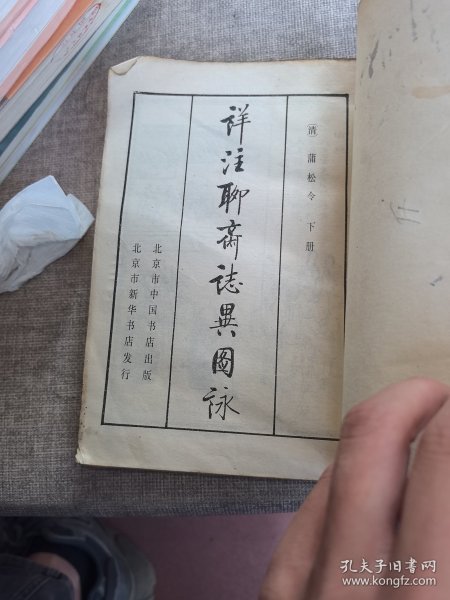 [清] 蒲松令 下册
詳注聊斎誌異圖詠
北京市中国书店出版
北京市新华书店发行
孔夫子旧书网
www.kongfz.com